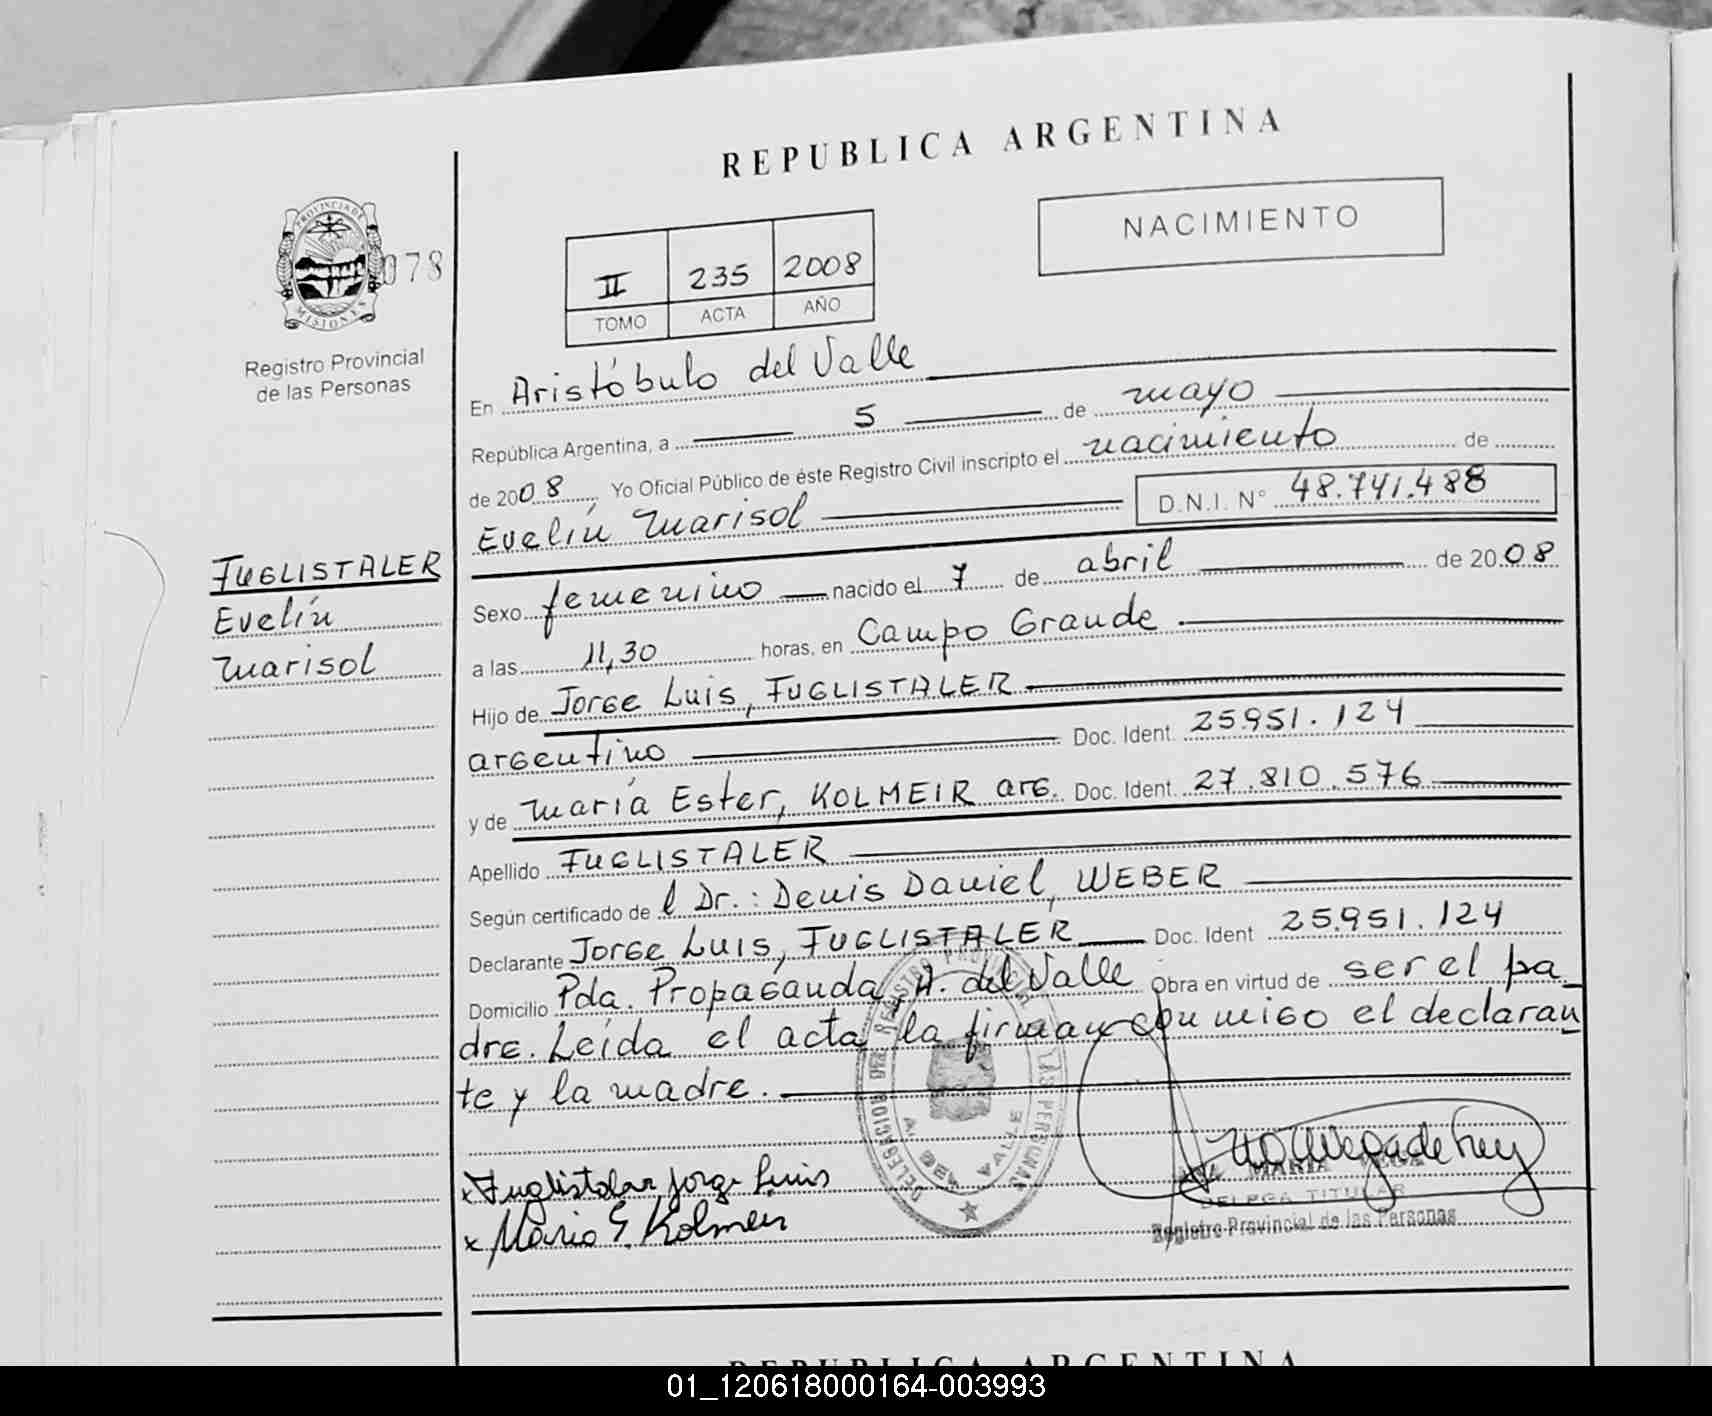 REPUBLICA ARGENTINA
NACIMIENTO
PROVINCIA DE
MISIONES
078
Registro Provincial
de las Personas
II 235 2008
TOMO ACTA AÑO
En Aristóbulo del Valle
República Argentina, a 5 de mayo
de 2008 Yo Oficial Público de éste Registro Civil inscripto el nacimiento de
Evelín Marisol D.N.I. N° 48.741.488
FUGLISTALER
Evelín
Marisol
Sexo femenino nacido el 7 de abril de 2008
a las 11,30 horas, en Campo Grande
Hijo de Jorge Luis, FUGLISTALER
argentino Doc. Ident. 25951.124
y de María Ester, KOLMEIR arg. Doc. Ident. 27.810.576
Apellido FUGLISTALER
Según certificado de l Dr.: Denis Daniel, WEBER
Declarante Jorge Luis, FUGLISTALER Doc. Ident 25.951.124
Domicilio Pda. Propaganda, A. del Valle Obra en virtud de ser el pa_
dre. Leída el acta la firman conmigo el declaran
te y la madre.
DELEGACION DEL REGISTRO PROVINCIAL DE LAS PERSONAS
VALLE
x Fuglistaler Jorge Luis
x Maria E. Kolmeir
MARIA VEGA
DELEGA TITULAR
Registro Provincial de las Personas
REPUBLICA ARGENTINA
01_120618000164-003993